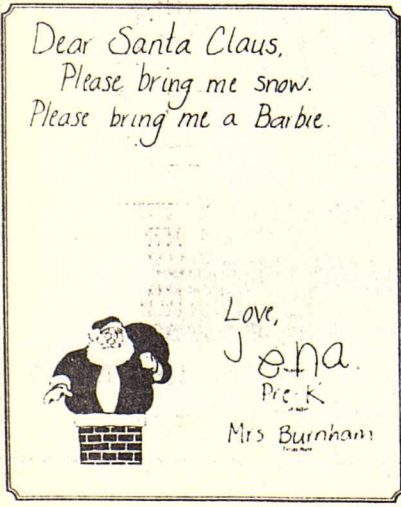 Dear Santa Claus,
Please bring me snow.
Please bring me a Barbie.
Love,
Jena.
Pre-K
Mrs Burnham